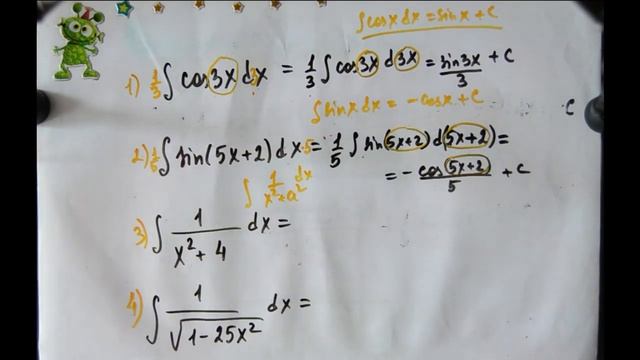 ∫cosxdx = sinx + C
1) 1/3 ∫ cos3x dx 3 = 1/3 ∫ cos3x d3x = sin3x/3 + C
∫sinxdx = -cosx + C
C
2) 1/5 ∫ sin(5x+2)dx·5 = 1/5 ∫ sin(5x+2)d(5x+2) =
= - cos(5x+2)/5 + C
∫ 1/(x²+a²) dx
3) ∫ 1/(x²+4) dx =
4) ∫ 1/√(1-25x²) dx =